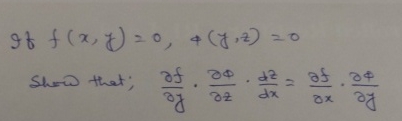 If f(x, y) = 0, φ(y, z) = 0
Show that; ∂f/∂y . ∂φ/∂z . dz/dx = ∂f/∂x . ∂φ/∂y